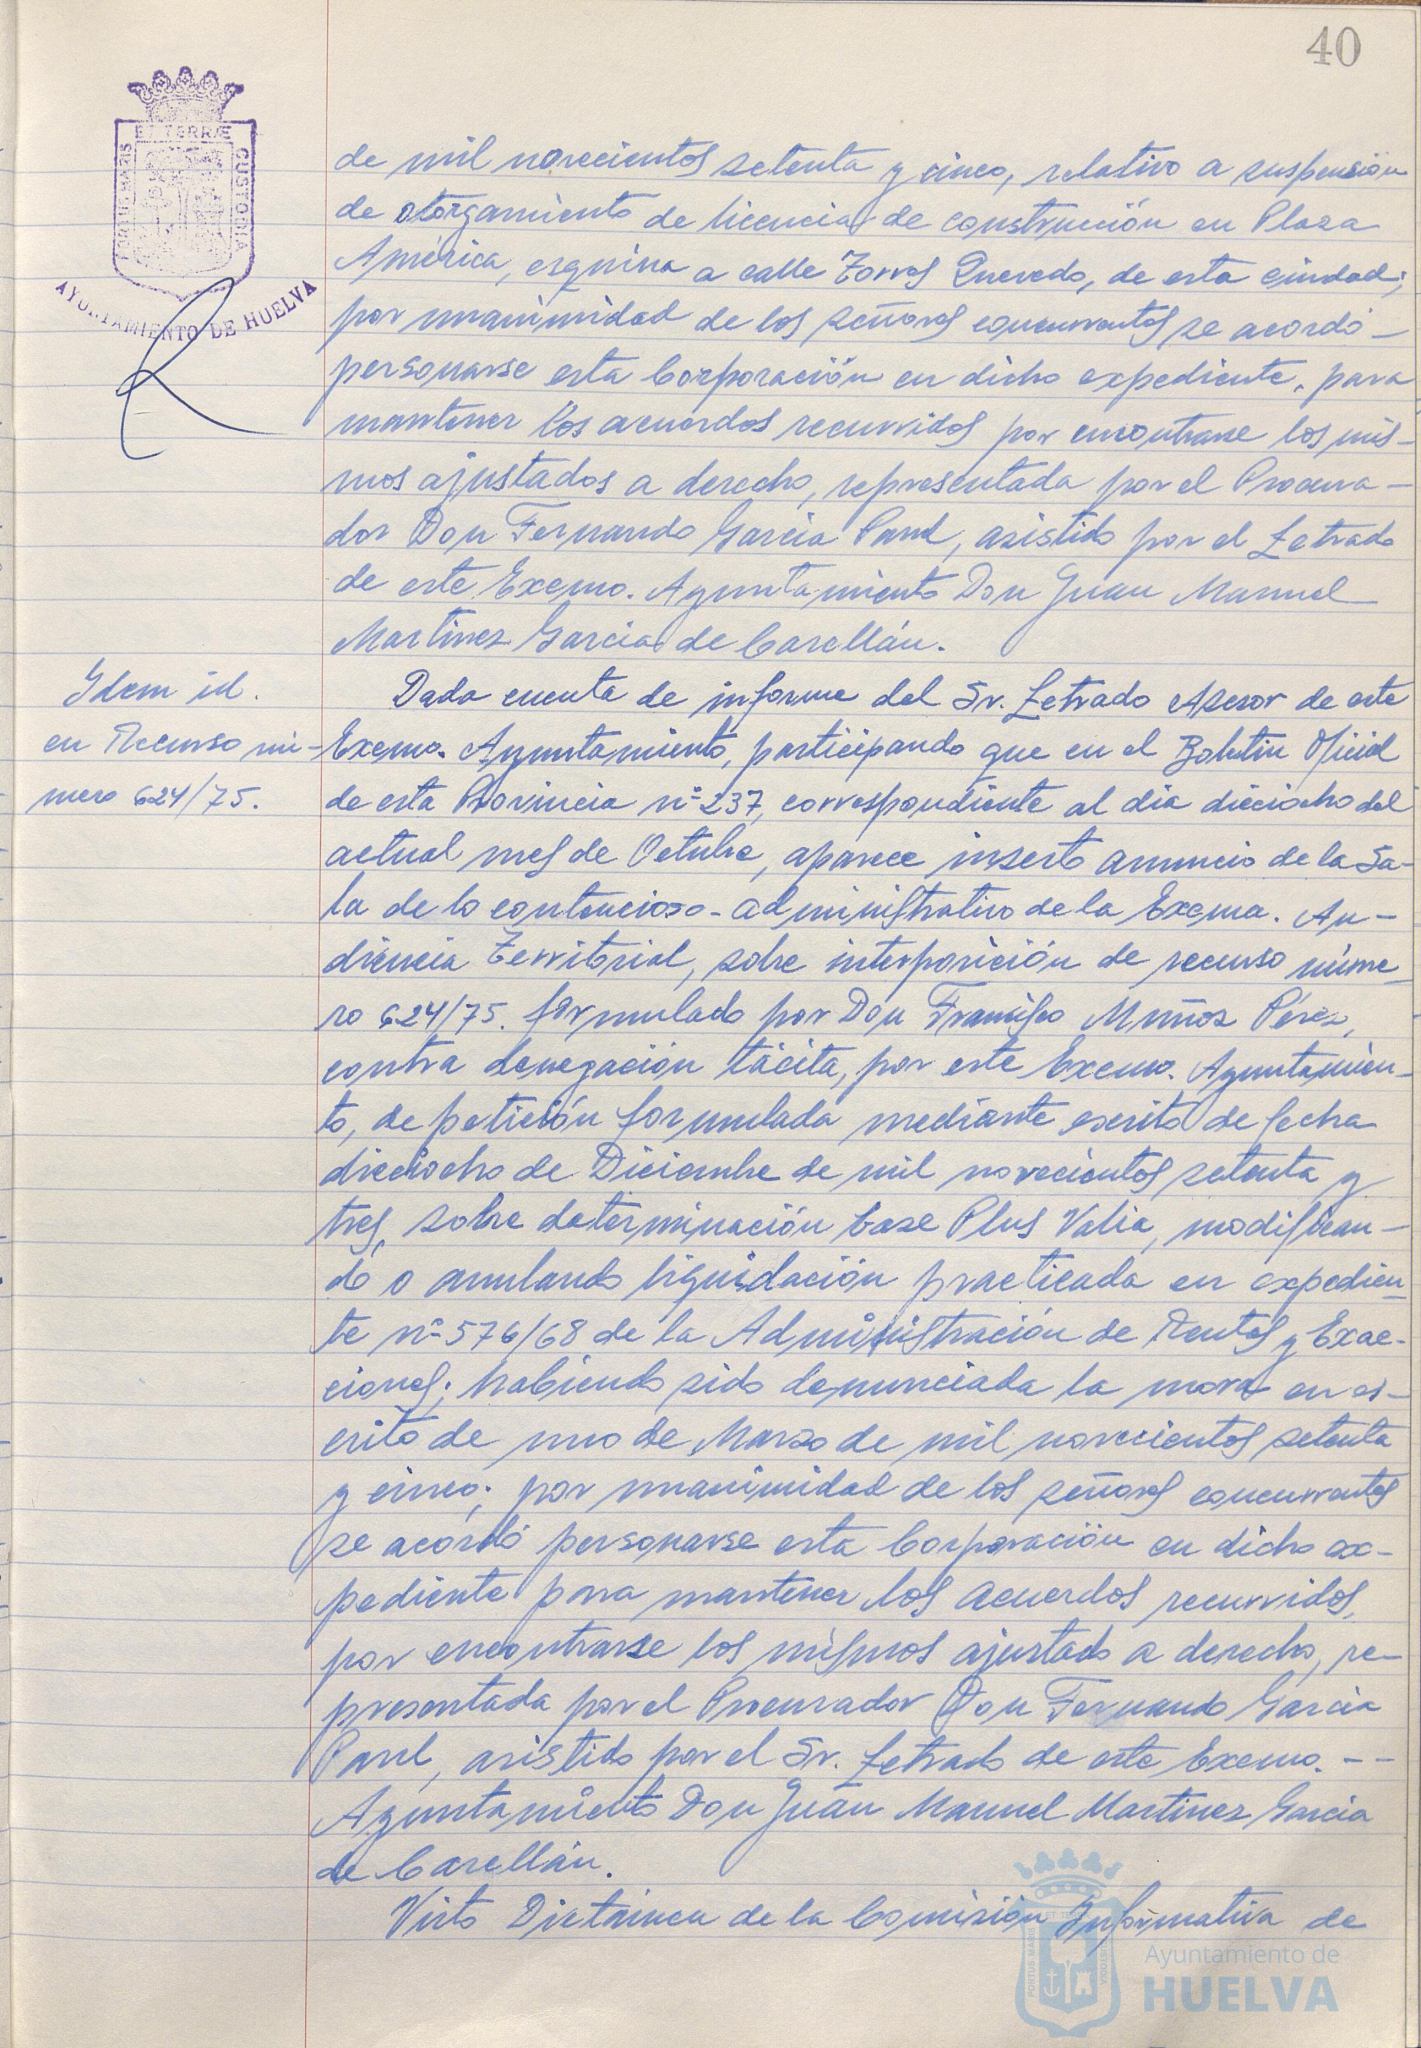 40
PORTUS MARIS
ET TERRÆ
CUSTODIA
AYUNTAMIENTO DE HUELVA
de mil novecientos setenta y cinco, relativo a suspensión
de otorgamiento de licencia de construcción en Plaza
América, esquina a calle Torres Quevedo, de esta ciudad;
por unanimidad de los señores concurrentes se acordó -
personarse esta Corporación en dicho expediente, para
mantener los acuerdos recurridos por encontrarse los mis-
mos ajustados a derecho, representada por el Procura-
dor Don Fernando García Parel, asistido por el Letrado
de este Excmo. Ayuntamiento Don Juan Manuel
Martínez García de Carellán.
Idem id.
en Recurso nú-
mero 624/75.
Dada cuenta de informe del Sr. Letrado Asesor de este
Excmo. Ayuntamiento, participando que en el Boletín Oficial
de esta Provincia nº 237, correspondiente al día dieciocho del
actual mes de Octubre, aparece inserto anuncio de la Sa-
la de lo contencioso-administrativo de la Excma. Au-
diencia Territorial, sobre interposición de recurso núme-
ro 624/75. formulado por Don Francisco Muñoz Pérez,
contra denegación tácita, por este Excmo. Ayuntamien-
to, de petición formulada mediante escrito de fecha
dieciocho de Diciembre de mil novecientos setenta y
tres, sobre determinación base Plus Valia, modifican-
do o anulando liquidación practicada en expedien-
te nº 576/68 de la Administración de Rentas y Exac-
ciones; habiendo sido denunciada la mora en es-
crito de uno de Marzo de mil novecientos setenta
y cinco; por unanimidad de los señores concurrentes
se acordó personarse esta Corporación en dicho ex-
pediente para mantener los acuerdos recurridos,
por encontrarse los mismos ajustado a derecho, re-
presentada por el Procurador Don Fernando García
Parel, asistido por el Sr. Letrado de este Excmo. - -
Ayuntamiento Don Juan Manuel Martínez García
de Carellán.
Visto Dictamen de la Comisión Informativa de
PORTUS MARIS
ET TERRÆ
CUSTODIA
Ayuntamiento de
HUELVA